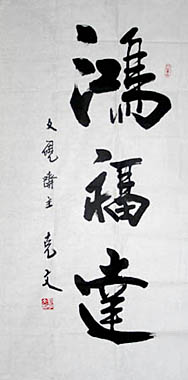 鴻福達
文覺齋主 克文